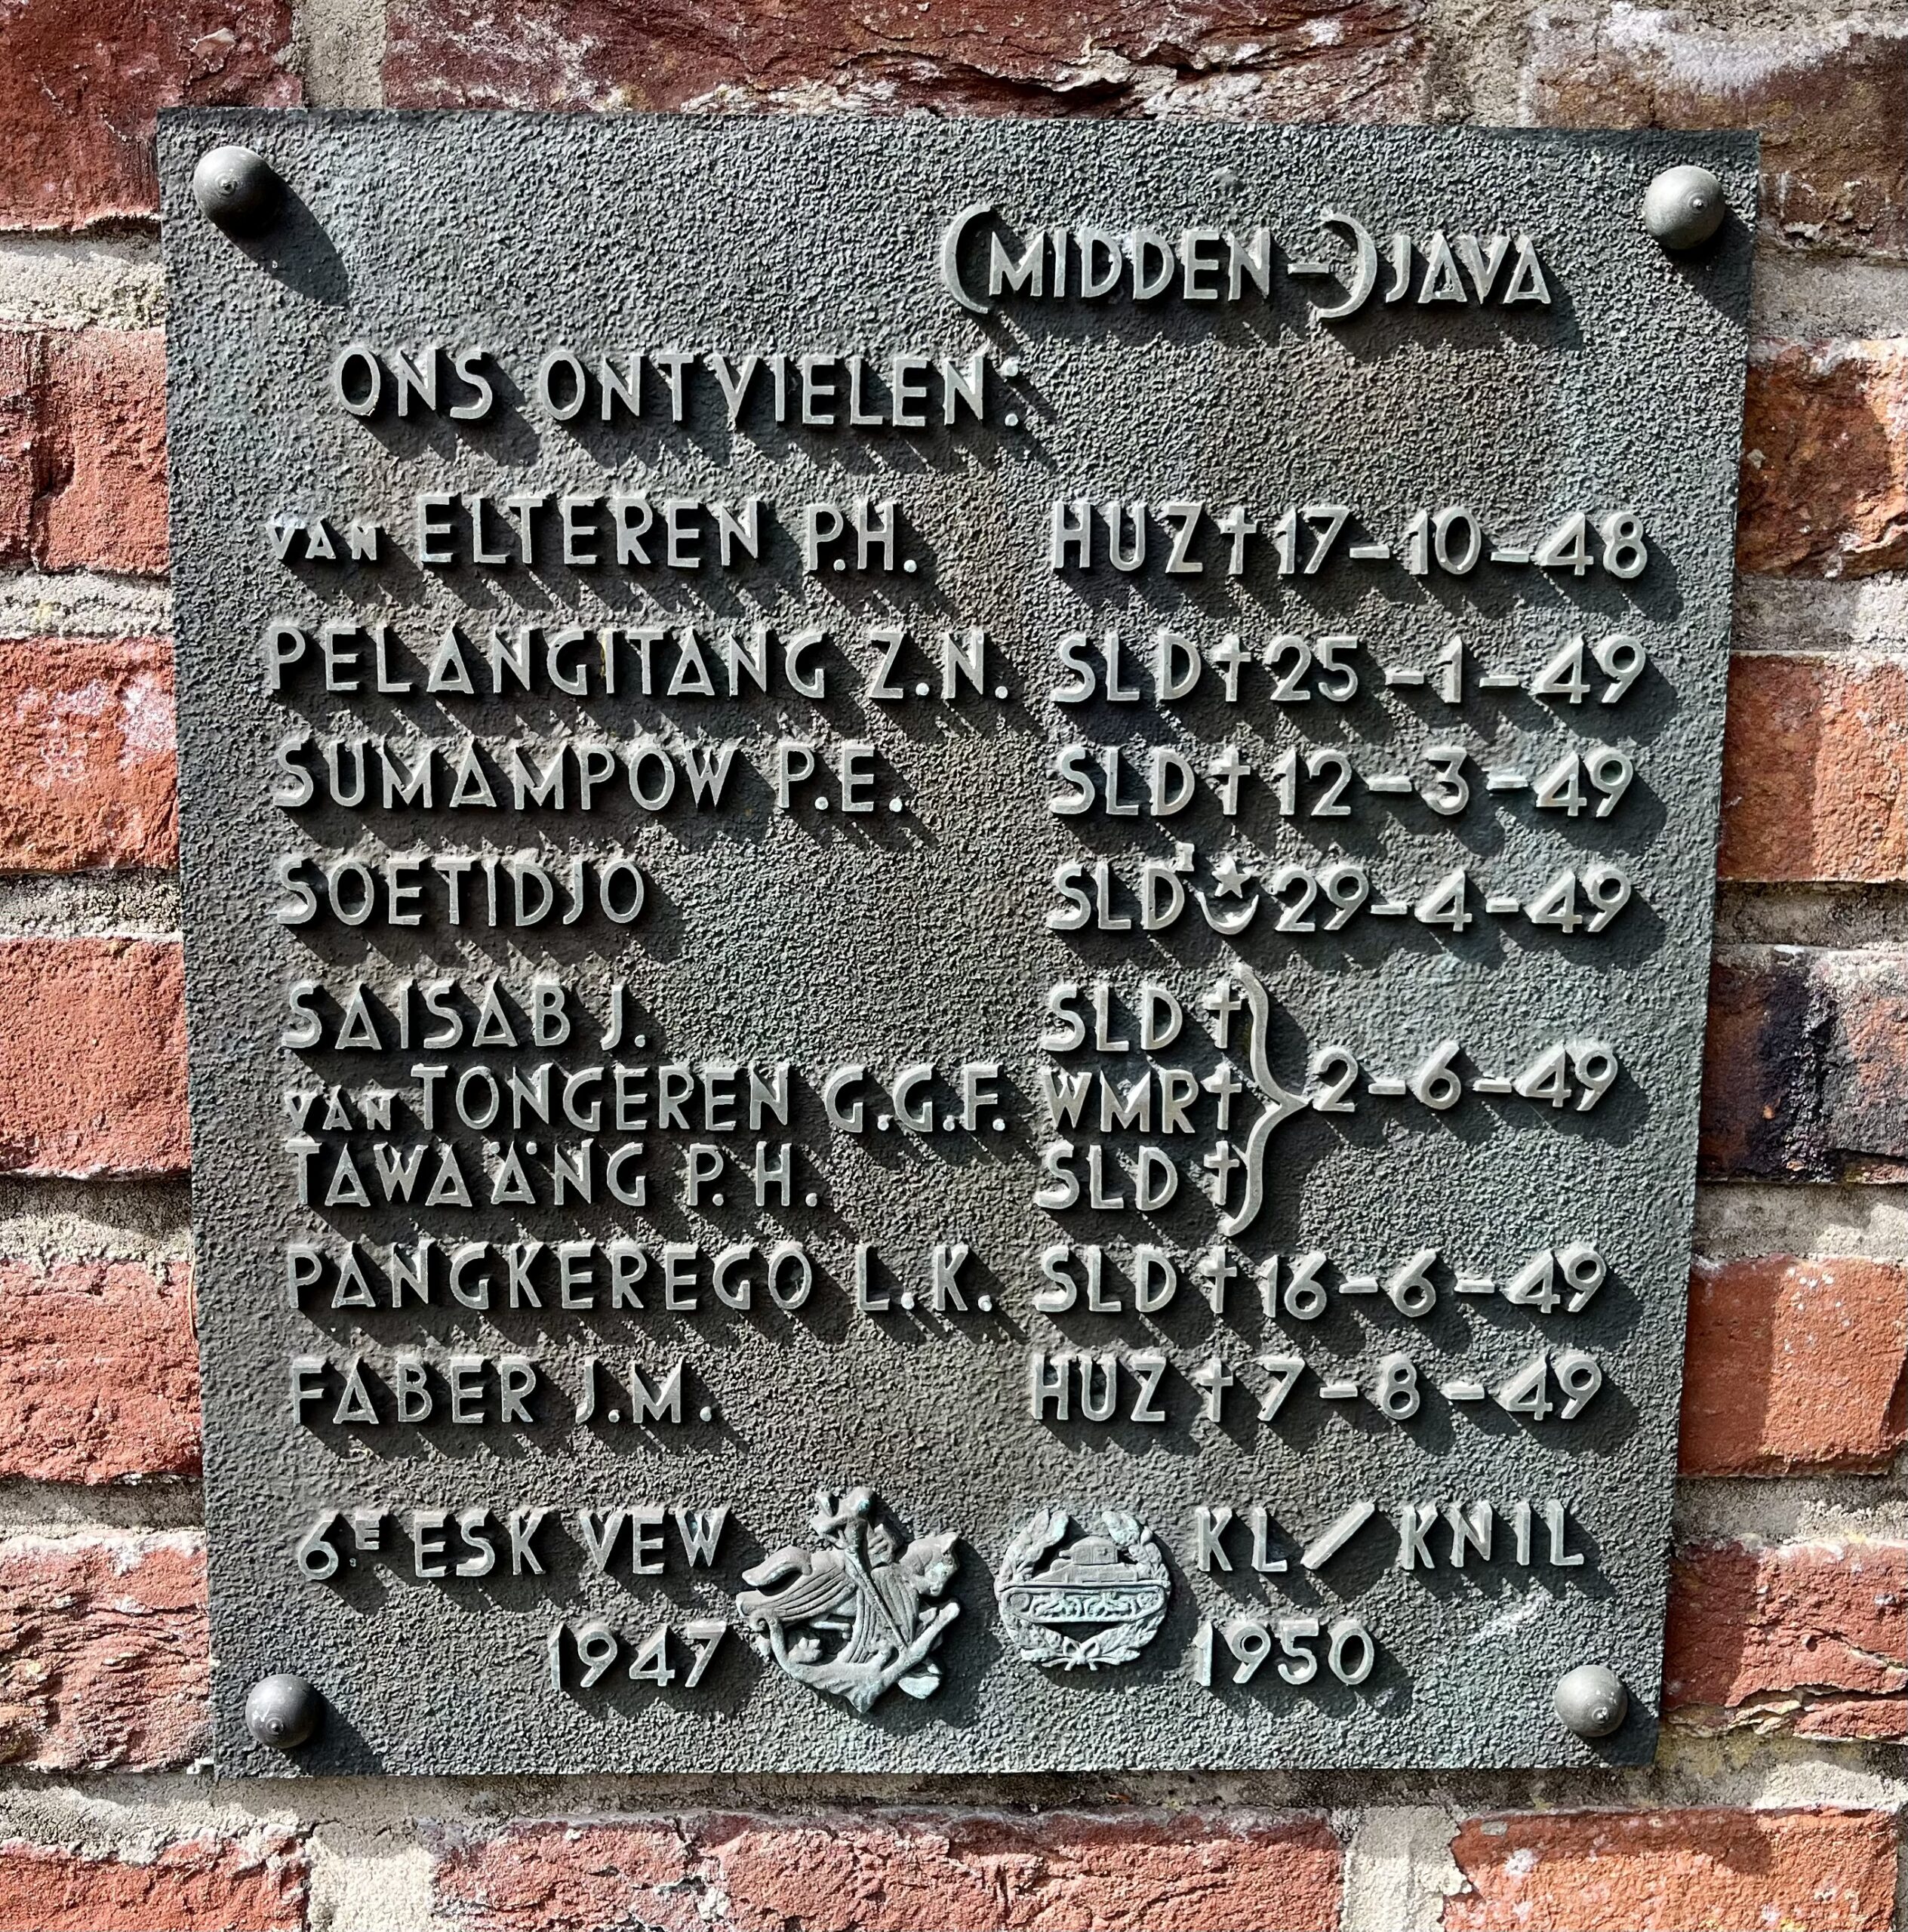 (MIDDEN-)JAVA
ONS ONTVIELEN:
VAN ELTEREN P.H. HUZ † 17-10-48
PELANGITANG Z.N. SLD † 25-1-49
SUMAMPOW P.E. SLD † 12-3-49
SOETIDJO SLD I ☪ 29-4-49
SAISAB J. SLD †
VAN TONGEREN G.G.F. WMR † } 2-6-49
TAWAÄNG P.H. SLD †
PANGKEREGO L.K. SLD † 16-6-49
FABER J.M. HUZ † 7-8-49
6E ESK VEW KL/KNIL
1947 1950